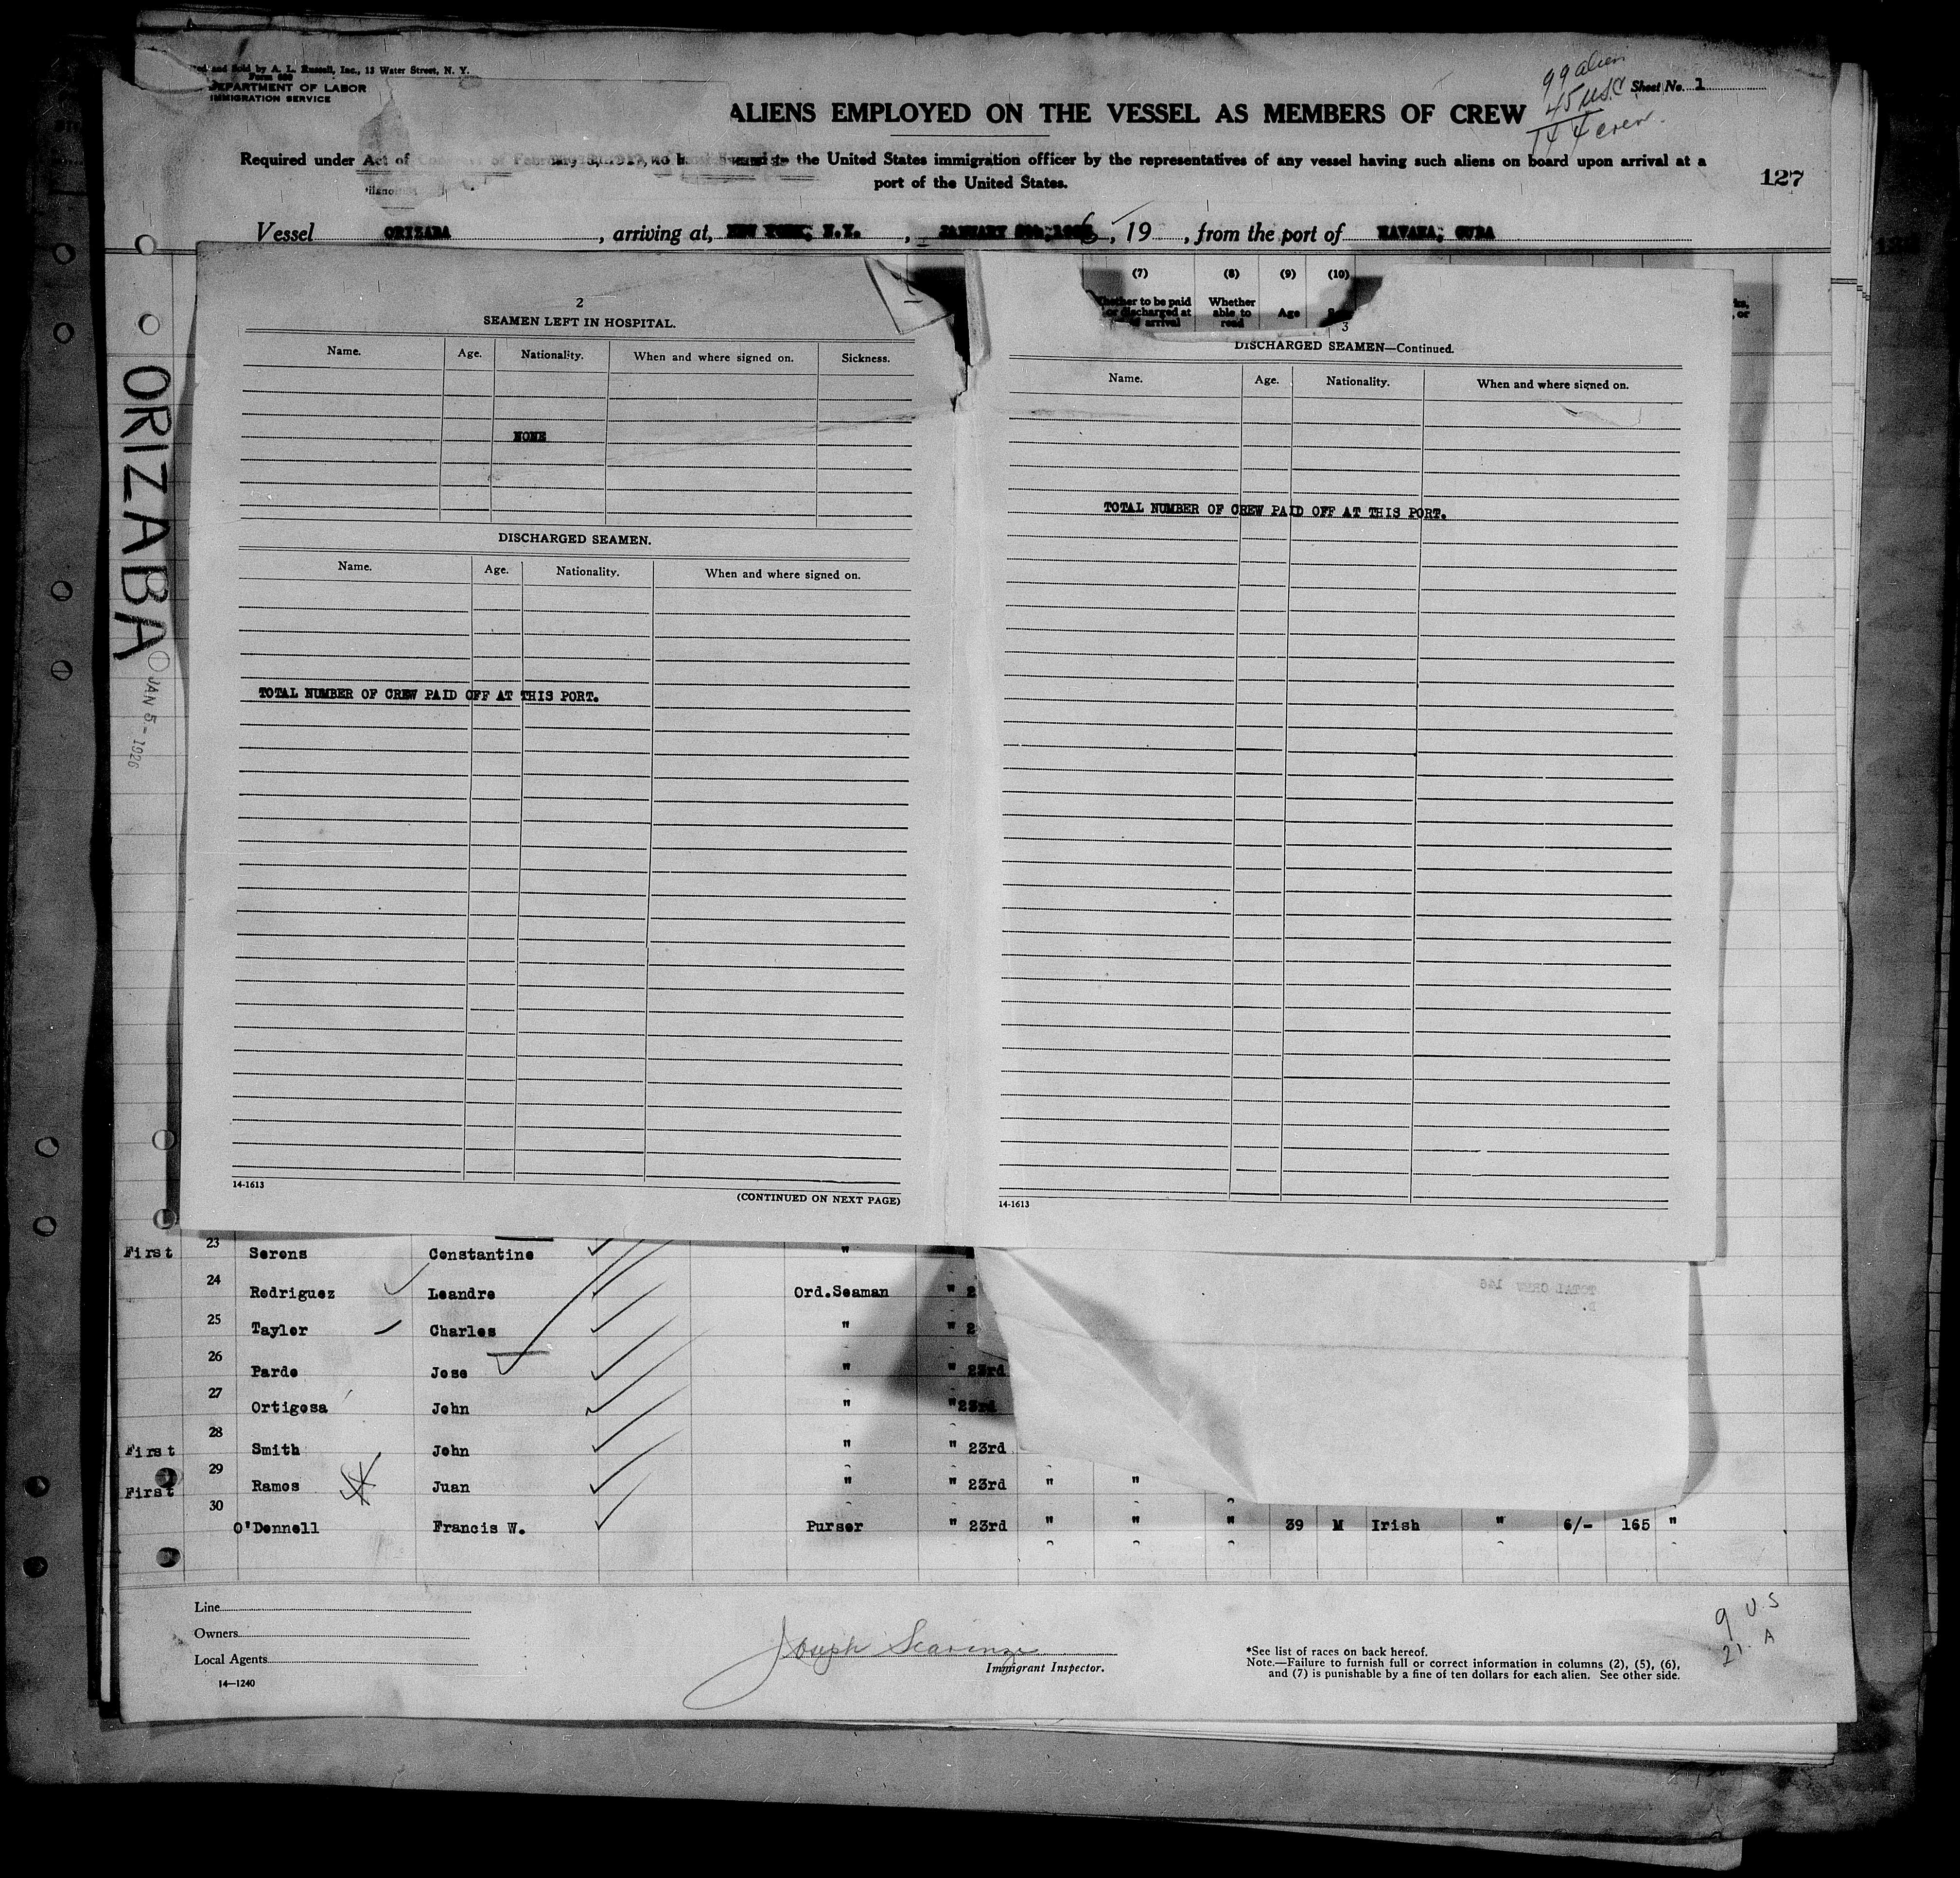 ted and Sold by A. L. Russell, Inc., 13 Water Street, N. Y.
Form 680
DEPARTMENT OF LABOR
IMMIGRATION SERVICE
99 alien
45 U.S.C.
144 crew.
Sheet No. 1
ALIENS EMPLOYED ON THE VESSEL AS MEMBERS OF CREW
Required under Act of Congress of February 5, 1917, to be the United States immigration officer by the representatives of any vessel having such aliens on board upon arrival at a
port of the United States.
127
Vessel ORIZABA, arriving at, NEW YORK, N.Y., JANUARY 5th, 1926, 19 , from the port of HAVANA, CUBA
ORIZABA
JAN 5 - 1926
(7) (8) (9) (10)
Whether to be paid or discharged at arrival
Whether able to read
Age
2
SEAMEN LEFT IN HOSPITAL.
Name. Age. Nationality. When and where signed on. Sickness.
NONE
DISCHARGED SEAMEN.
Name. Age. Nationality. When and where signed on.
TOTAL NUMBER OF CREW PAID OFF AT THIS PORT.
14-1613
(CONTINUED ON NEXT PAGE)
3
DISCHARGED SEAMEN—Continued.
Name. Age. Nationality. When and where signed on.
TOTAL NUMBER OF CREW PAID OFF AT THIS PORT.
14-1613
TOTAL CREW 146
First 23 Serens Constantine "
24 Rodriguez Leandre Ord.Seaman " 2
25 Tayler Charles " " 2
26 Parde Jose " " 23rd
27 Ortigosa John " " 23rd
First 28 Smith John " " 23rd
First 29 Ramos Juan " " 23rd " "
30 O'Donnell Francis W. Purser " 23rd " " " 39 M Irish " 6/- 165 "
Line
Owners
Local Agents
14—1240
Joseph Scarinzi
Immigrant Inspector.
*See list of races on back hereof.
Note.—Failure to furnish full or correct information in columns (2), (5), (6),
and (7) is punishable by a fine of ten dollars for each alien. See other side.
9 U.S
21 A